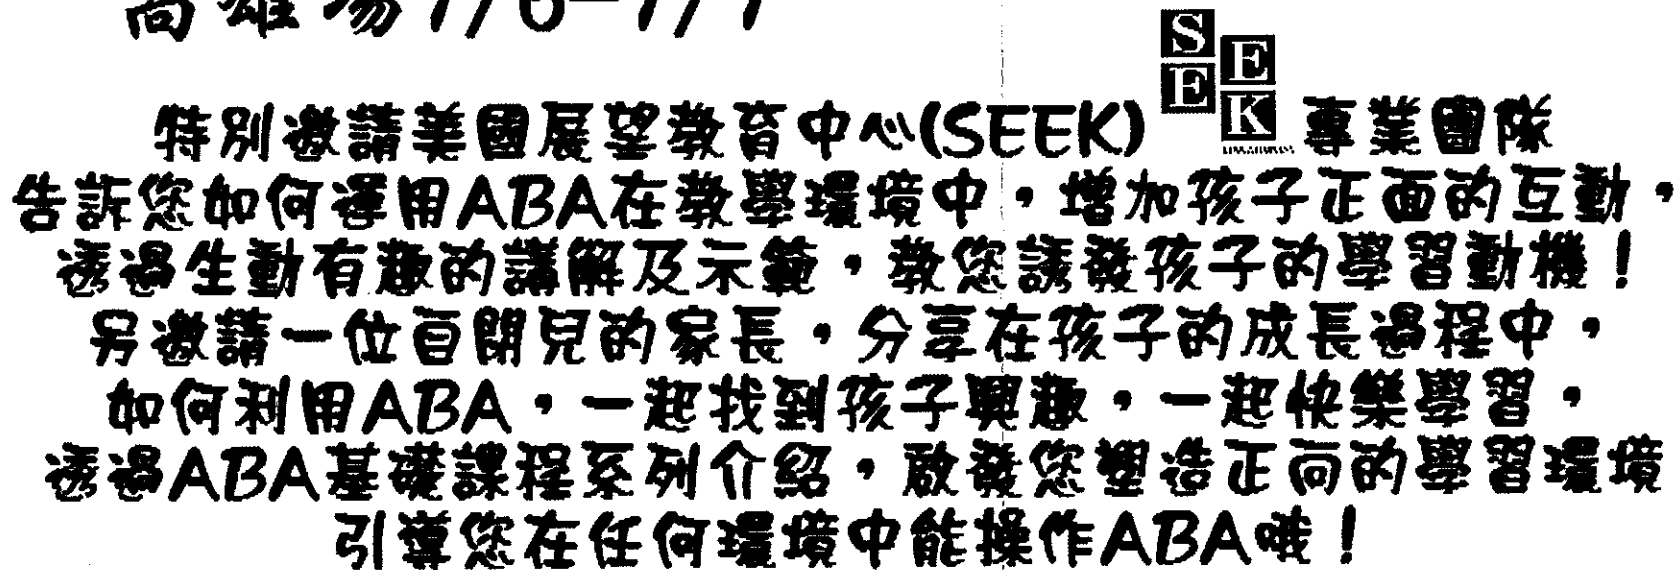 高雄場7/6-7/7
特別邀請美國展望教育中心(SEEK) SEEK 專業團隊
告訴您如何運用ABA在教學環境中，增加孩子正面的互動，
透過生動有趣的講解及示範，教您誘發孩子的學習動機！
另邀請一位自閉兒的家長，分享在孩子的成長過程中，
如何利用ABA，一起找到孩子興趣，一起快樂學習，
透過ABA基礎課程系列介紹，啟發您塑造正向的學習環境
引導您在任何環境中能操作ABA哦！